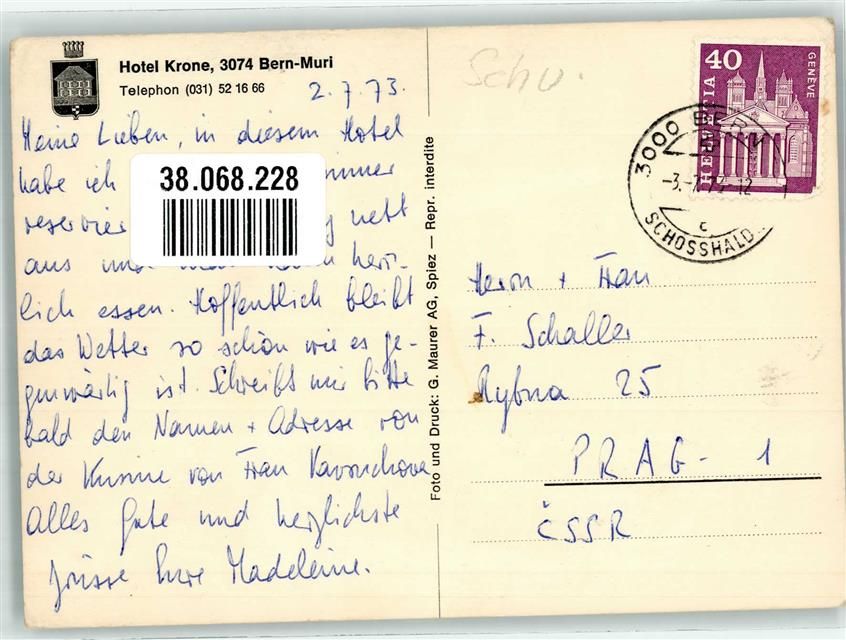 Hotel Krone, 3074 Bern-Muri
Telephon (031) 52 16 66
2.7.73.
Meine Lieben, in diesem Hotel
habe ich
38.068.228
aus und
lich essen. Hoffentlich bleibt
das Wetter so schön wie es ge-
genwärtig ist. Schreibt mir bitte
bald den Namen + Adresse von
der Kusine von Frau
Alles Gute und herzlichste
Grüsse Eure Madeleine.
Foto und Druck: G. Maurer AG, Spiez — Repr. interdite
Schu.
40
GENÈVE
HELVETIA
3000 BERN
-3.-7.73-12
c
SCHOSSHALD
Herrn + Frau
F. Schaller
Rybna 25
PRAG - 1
ČSSR